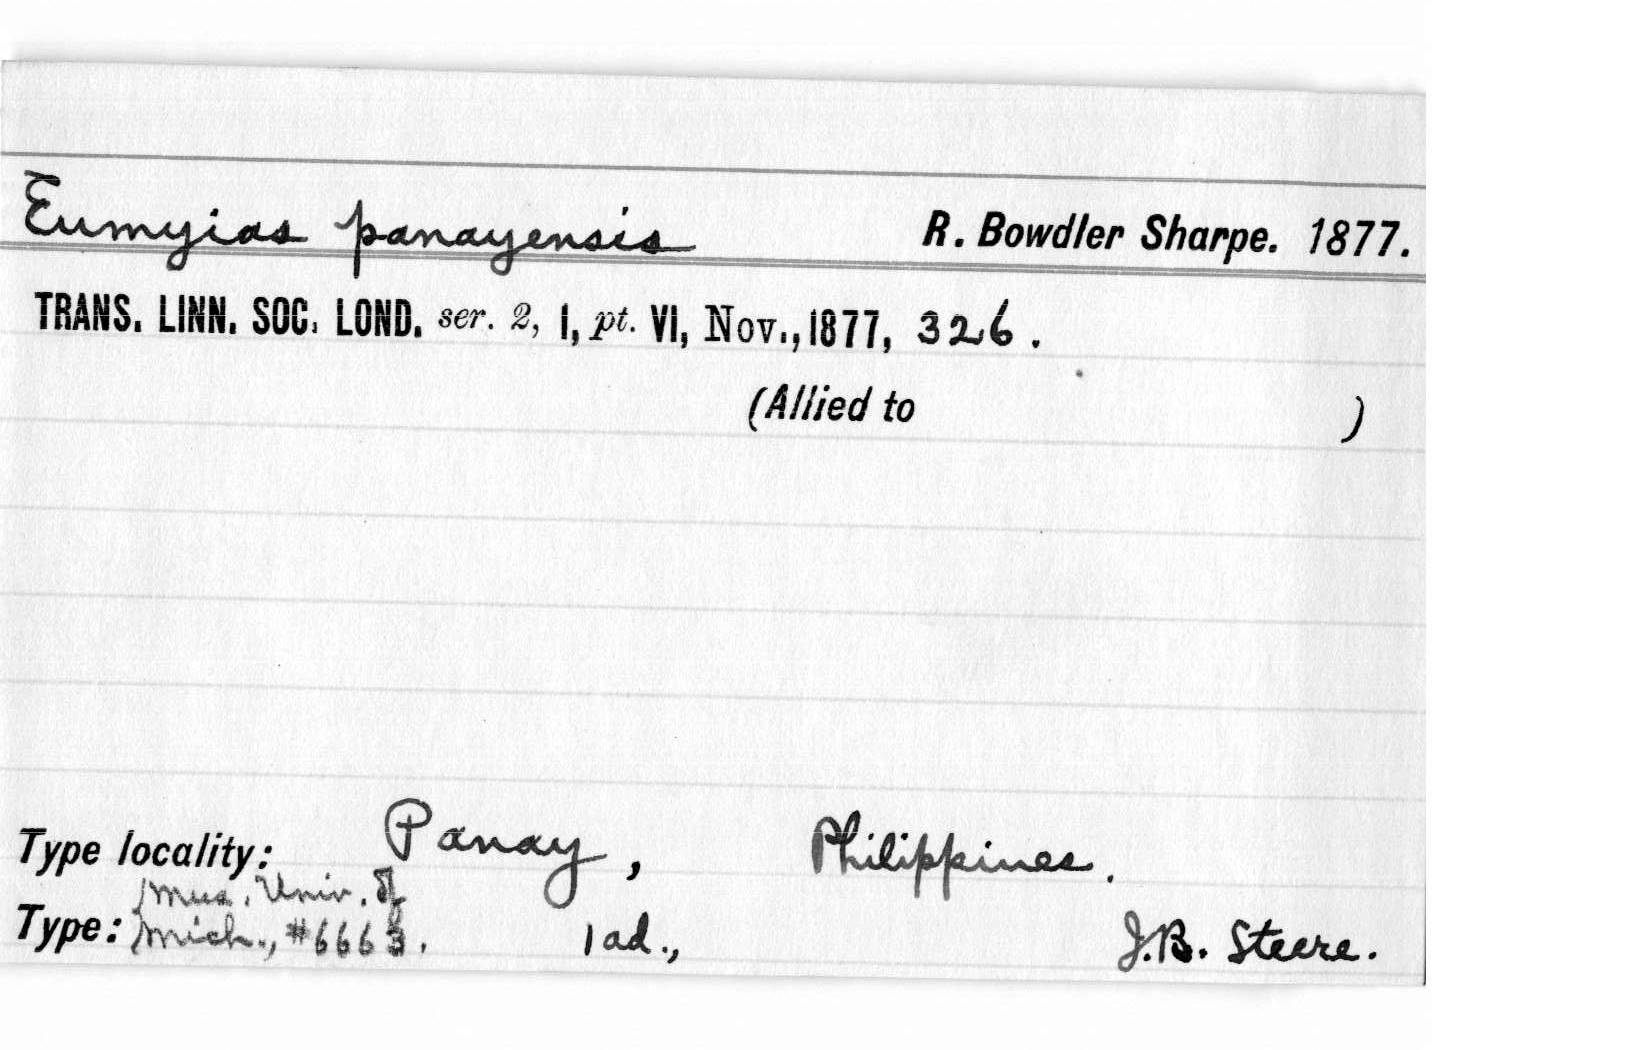 Eumyias panayensis R. Bowdler Sharpe. 1877.
TRANS. LINN. SOC. LOND. ser. 2, I, pt. VI, Nov., 1877, 326.
(Allied to )
Type locality: Panay, Philippines.
Mus. Univ. of
Type: Mich., #6663. 1 ad., J.B. Steere.